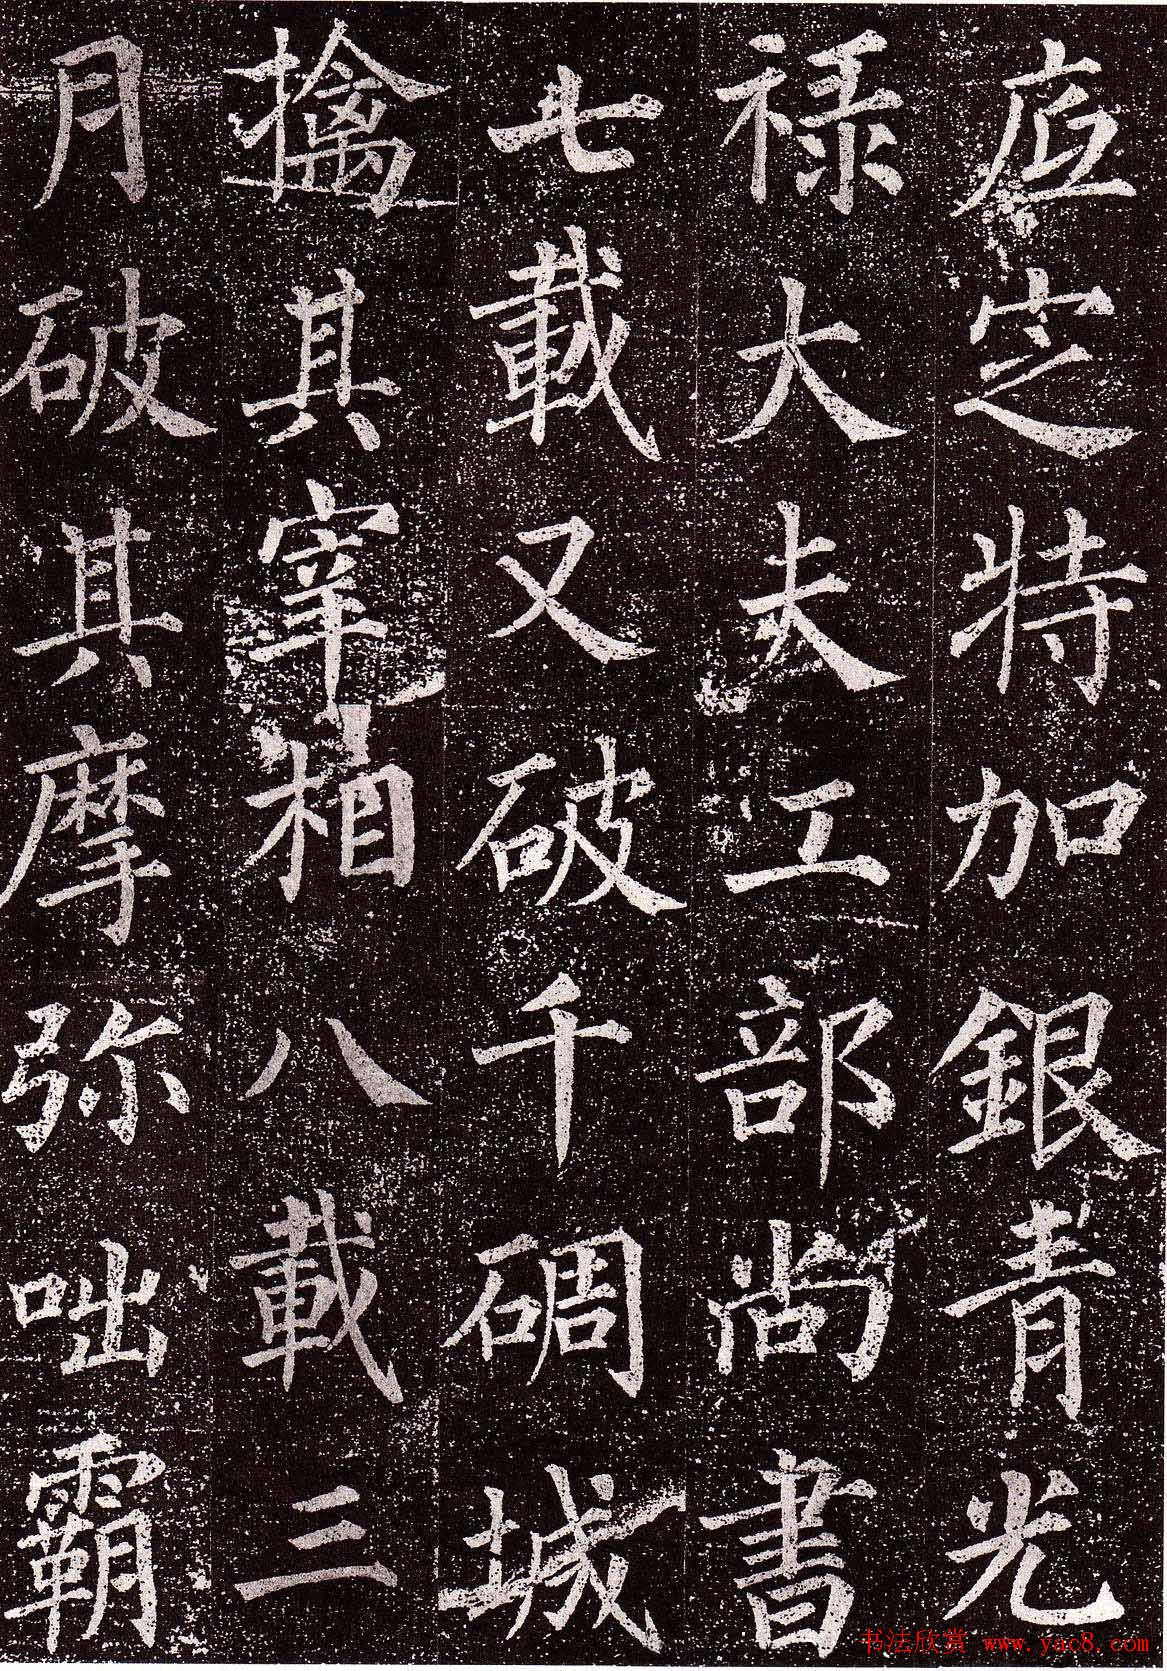 底定特加銀青光
禄大夫工部尚書
七載又破千碉城
擒其宰相八載三
月破其摩弥咄霸
书法欣赏 www.yac8.com